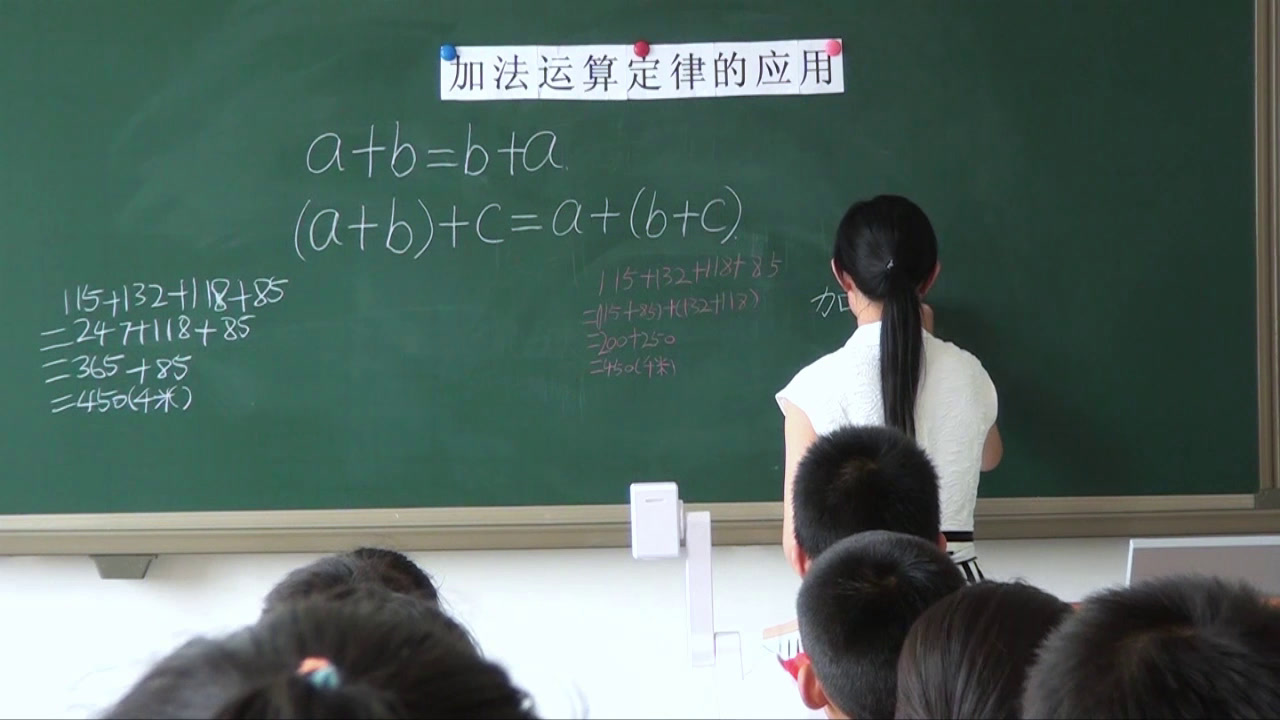 加法运算定律的应用
a+b=b+a
(a+b)+c=a+(b+c)
115+132+118+85
=247+118+85
=365+85
=450(千米)
115+132+118+85
=(115+85)+(132+118)
=200+250
=450(千米)
加